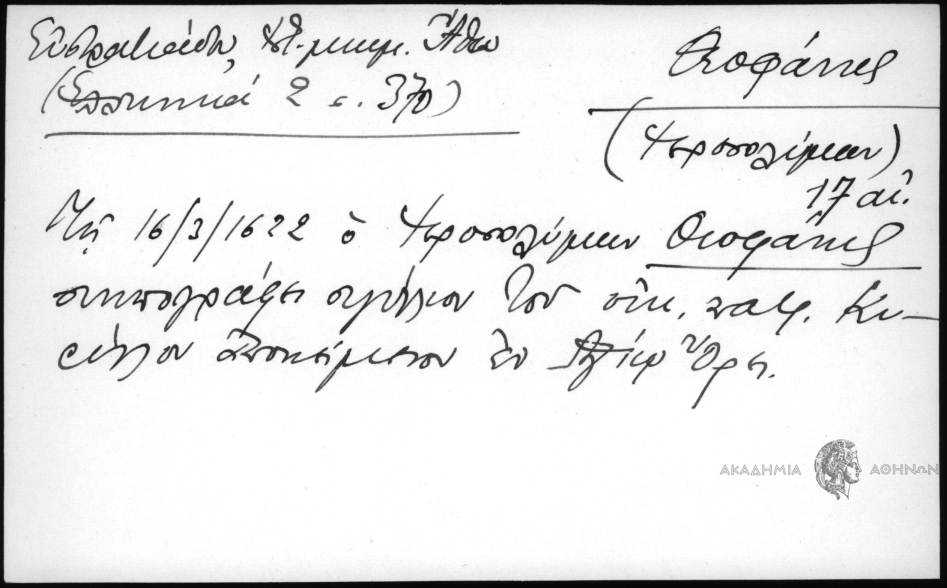 Εὐστρατιάδου, Ἱστ. μνημ. Ἄθω
(Ἑλληνικά 2 σ. 370)
Θεοφάνης
(Ἱεροσολύμων)
17 αἰ.
Τῇ 16/3/1622 ὁ Ἱεροσολύμων Θεοφάνης
συνυπογράφει σιγίλλιον τοῦ οἰκ. πατρ. Κυ-
ρίλλου ἀποκείμενον ἐν Ἁγίῳ Ὄρει.
ΑΚΑΔΗΜΙΑ ΑΘΗΝΩΝ